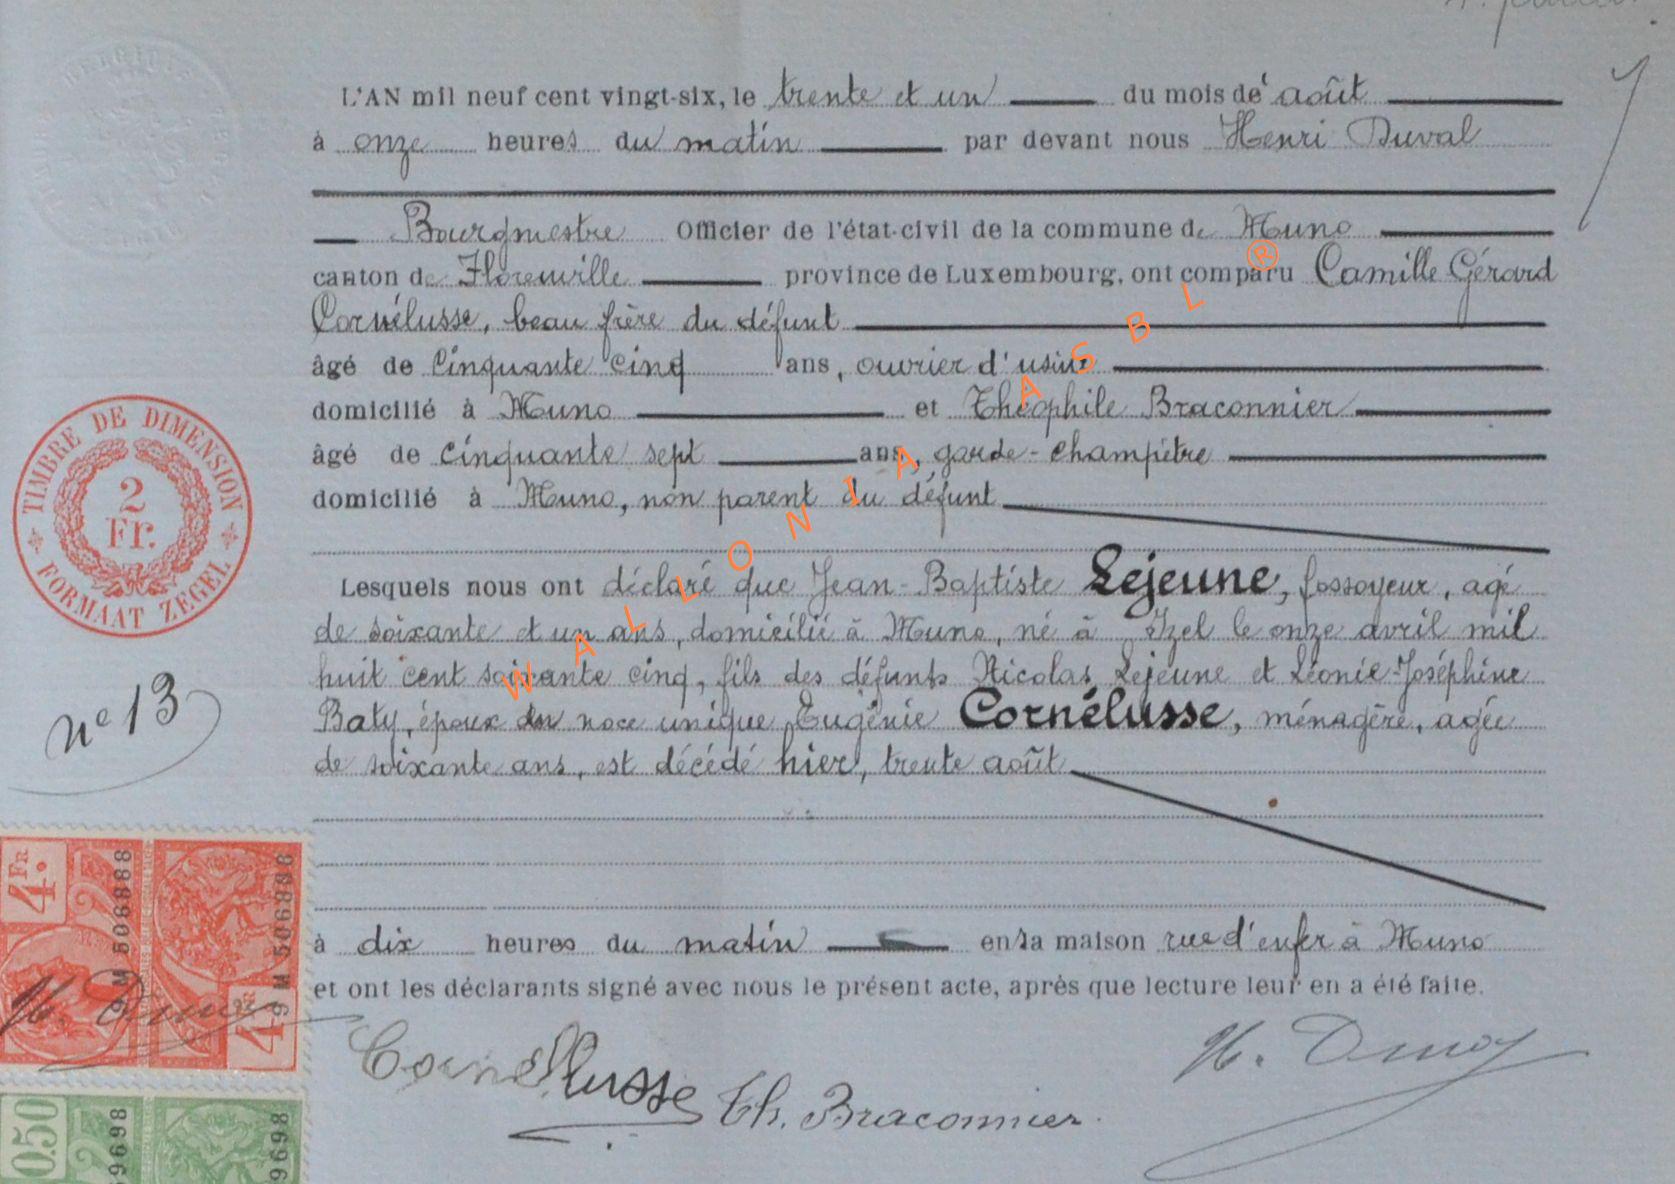 L'AN mil neuf cent vingt-six, le trente et un du mois de août
à onze heures du matin par devant nous Henri Duval
Bourgmestre Officier de l'état-civil de la commune de Muno
canton de Florenville province de Luxembourg, ont comparu Camille Gérard
Cornélusse, beau frère du défunt
âgé de Cinquante cinq ans, ouvrier d'usine
domicilié à Muno et Théophile Braconnier
âgé de cinquante sept ans, garde-champêtre
domicilié à Muno, non parent du défunt
Lesquels nous ont déclaré que Jean-Baptiste Lejeune, fossoyeur, agé
de soixante et un ans, domicilié à Muno, né à Izel le onze avril mil
huit cent soixante cinq, fils des défunts Nicolas Lejeune et Léonie-Joséphine
Baty, époux en noce unique Eugénie Cornélusse, ménagère, agée
de soixante ans, est décédé hier, trente août
à dix heures du matin en la maison rue d'enfer à Muno
et ont les déclarants signé avec nous le présent acte, après que lecture leur en a été faite.
Cornellusse Th. Braconnier.
TIMBRE DE DIMENSION
2
Fr.
FORMAAT ZEGEL
nº 13
4 Fr.
9 M 506888
9 M 506888
4
0.50
9698
9698
WALLONIA ASBL ®